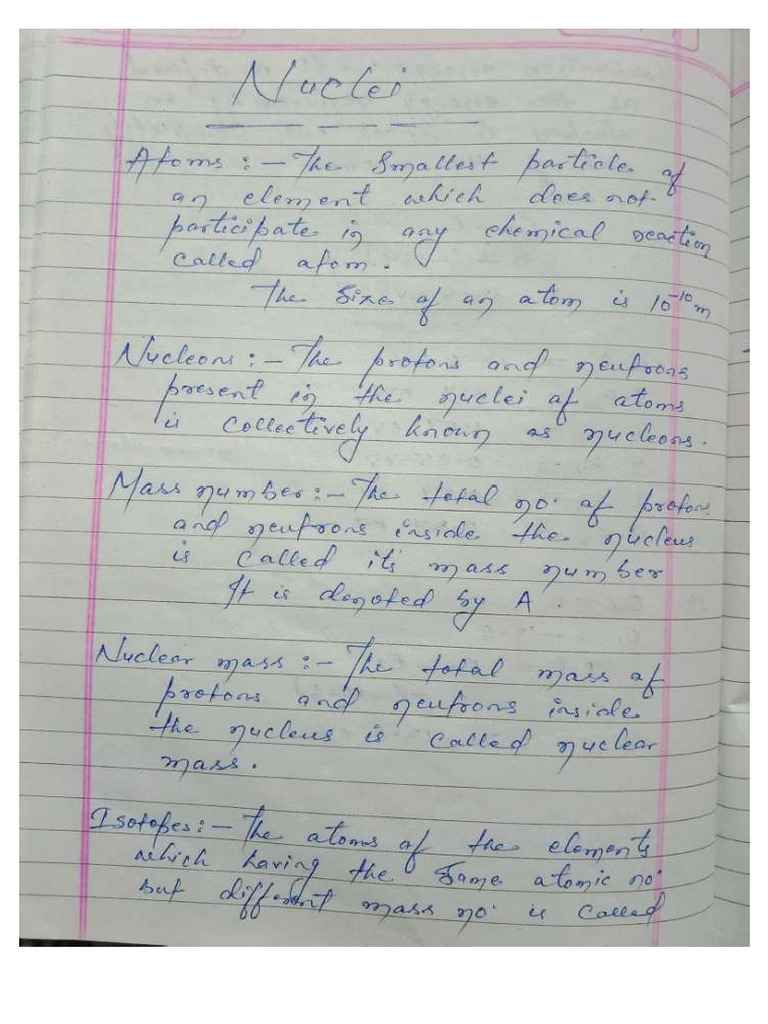 Nuclei
Atoms :- The Smallest particle of
an element which does not
participate in any chemical reaction
called atom.
The Size of an atom is 10⁻¹⁰ m
Nucleons :- The protons and neutrons
present in the nuclei of atoms
is collectively known as nucleons.
Mass number :- The total no. of protons
and neutrons inside the nucleus
is called its mass number
It is denoted by A.
Nuclear mass :- The total mass of
protons and neutrons inside
the nucleus is called nuclear
mass.
Isotopes :- The atoms of the elements
which having the same atomic no.
but different mass no. is called